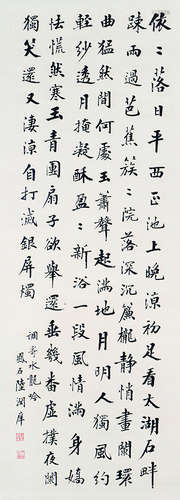 依〻落日平西正池上晚涼初足看太湖石畔
疎雨過芭蕉簇〻院落深沉簾櫳靜悄畫闌環
曲猛然間何處玉簫聲起滿地月明人獨風約
輕紗透月掩凝酥盈〻新浴一段風情滿身嬌
怯慌然寒玉青團扇子欲舉還垂幾番虛撲夜闌
獨笑還又淒涼自打滅銀屏燭
調寄水龍吟
鳳石陸潤庠